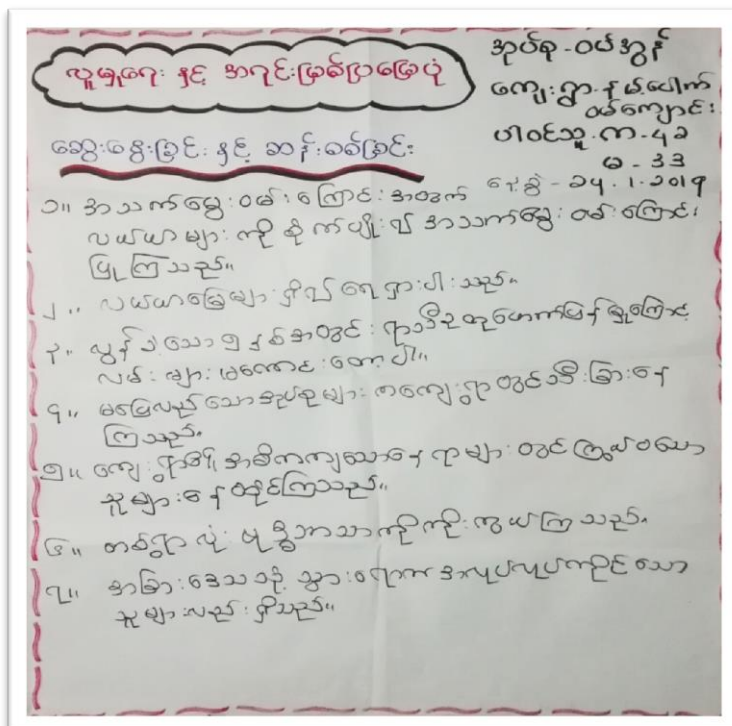 လူမှုရေး နှင့် အရင်းမြစ်ပြမြေပုံ
အုပ်စု - ဝမ်အွန်
ကျေးရွာ - နမ့်ပေါက်
ဝမ်ကျောင်း
ပါဝင်သူ - ကာ - ၄၁
မ - ၃၃
နေ့စွဲ - ၁၅.၁.၁၀၁၇
ဆွေးနွေးခြင်း နှင့် ဆန်းစစ်ခြင်း
၁။ အသက်မွေးဝမ်းကြောင်းအတွက်
လယ်ယာများကို စိုက်ပျိုး၍ အသက်မွေးဝမ်းကြောင်း
ပြုကြသည်။
၂။ လယ်ယာမြေများရှိ၍ ရေရှားပါးသည်။
၃။ လွန်ခဲ့သော ၅ နှစ်အတွင်း ရာသီဥတုဖောက်ပြန်မှုကြောင့်
လမ်းများမကောင်းတော့ပါ။
၄။ မပြေလည်သောအုပ်စုများ တကျေးရွာတွင်သီးခြားနေ
ကြသည်။
၅။ ကျေးရွာ၏ အဓိကကျသောနေရာများတွင်ကြွယ်ဝသော
သူများနေထိုင်ကြသည်။
၆။ တစ်ရွာလုံး ဗုဒ္ဓဘာသာကိုကိုးကွယ်ကြသည်။
၇။ အခြားဒေသသို့ သွားရောက်အလုပ်လုပ်ကိုင်သော
သူများလည်းရှိသည်။